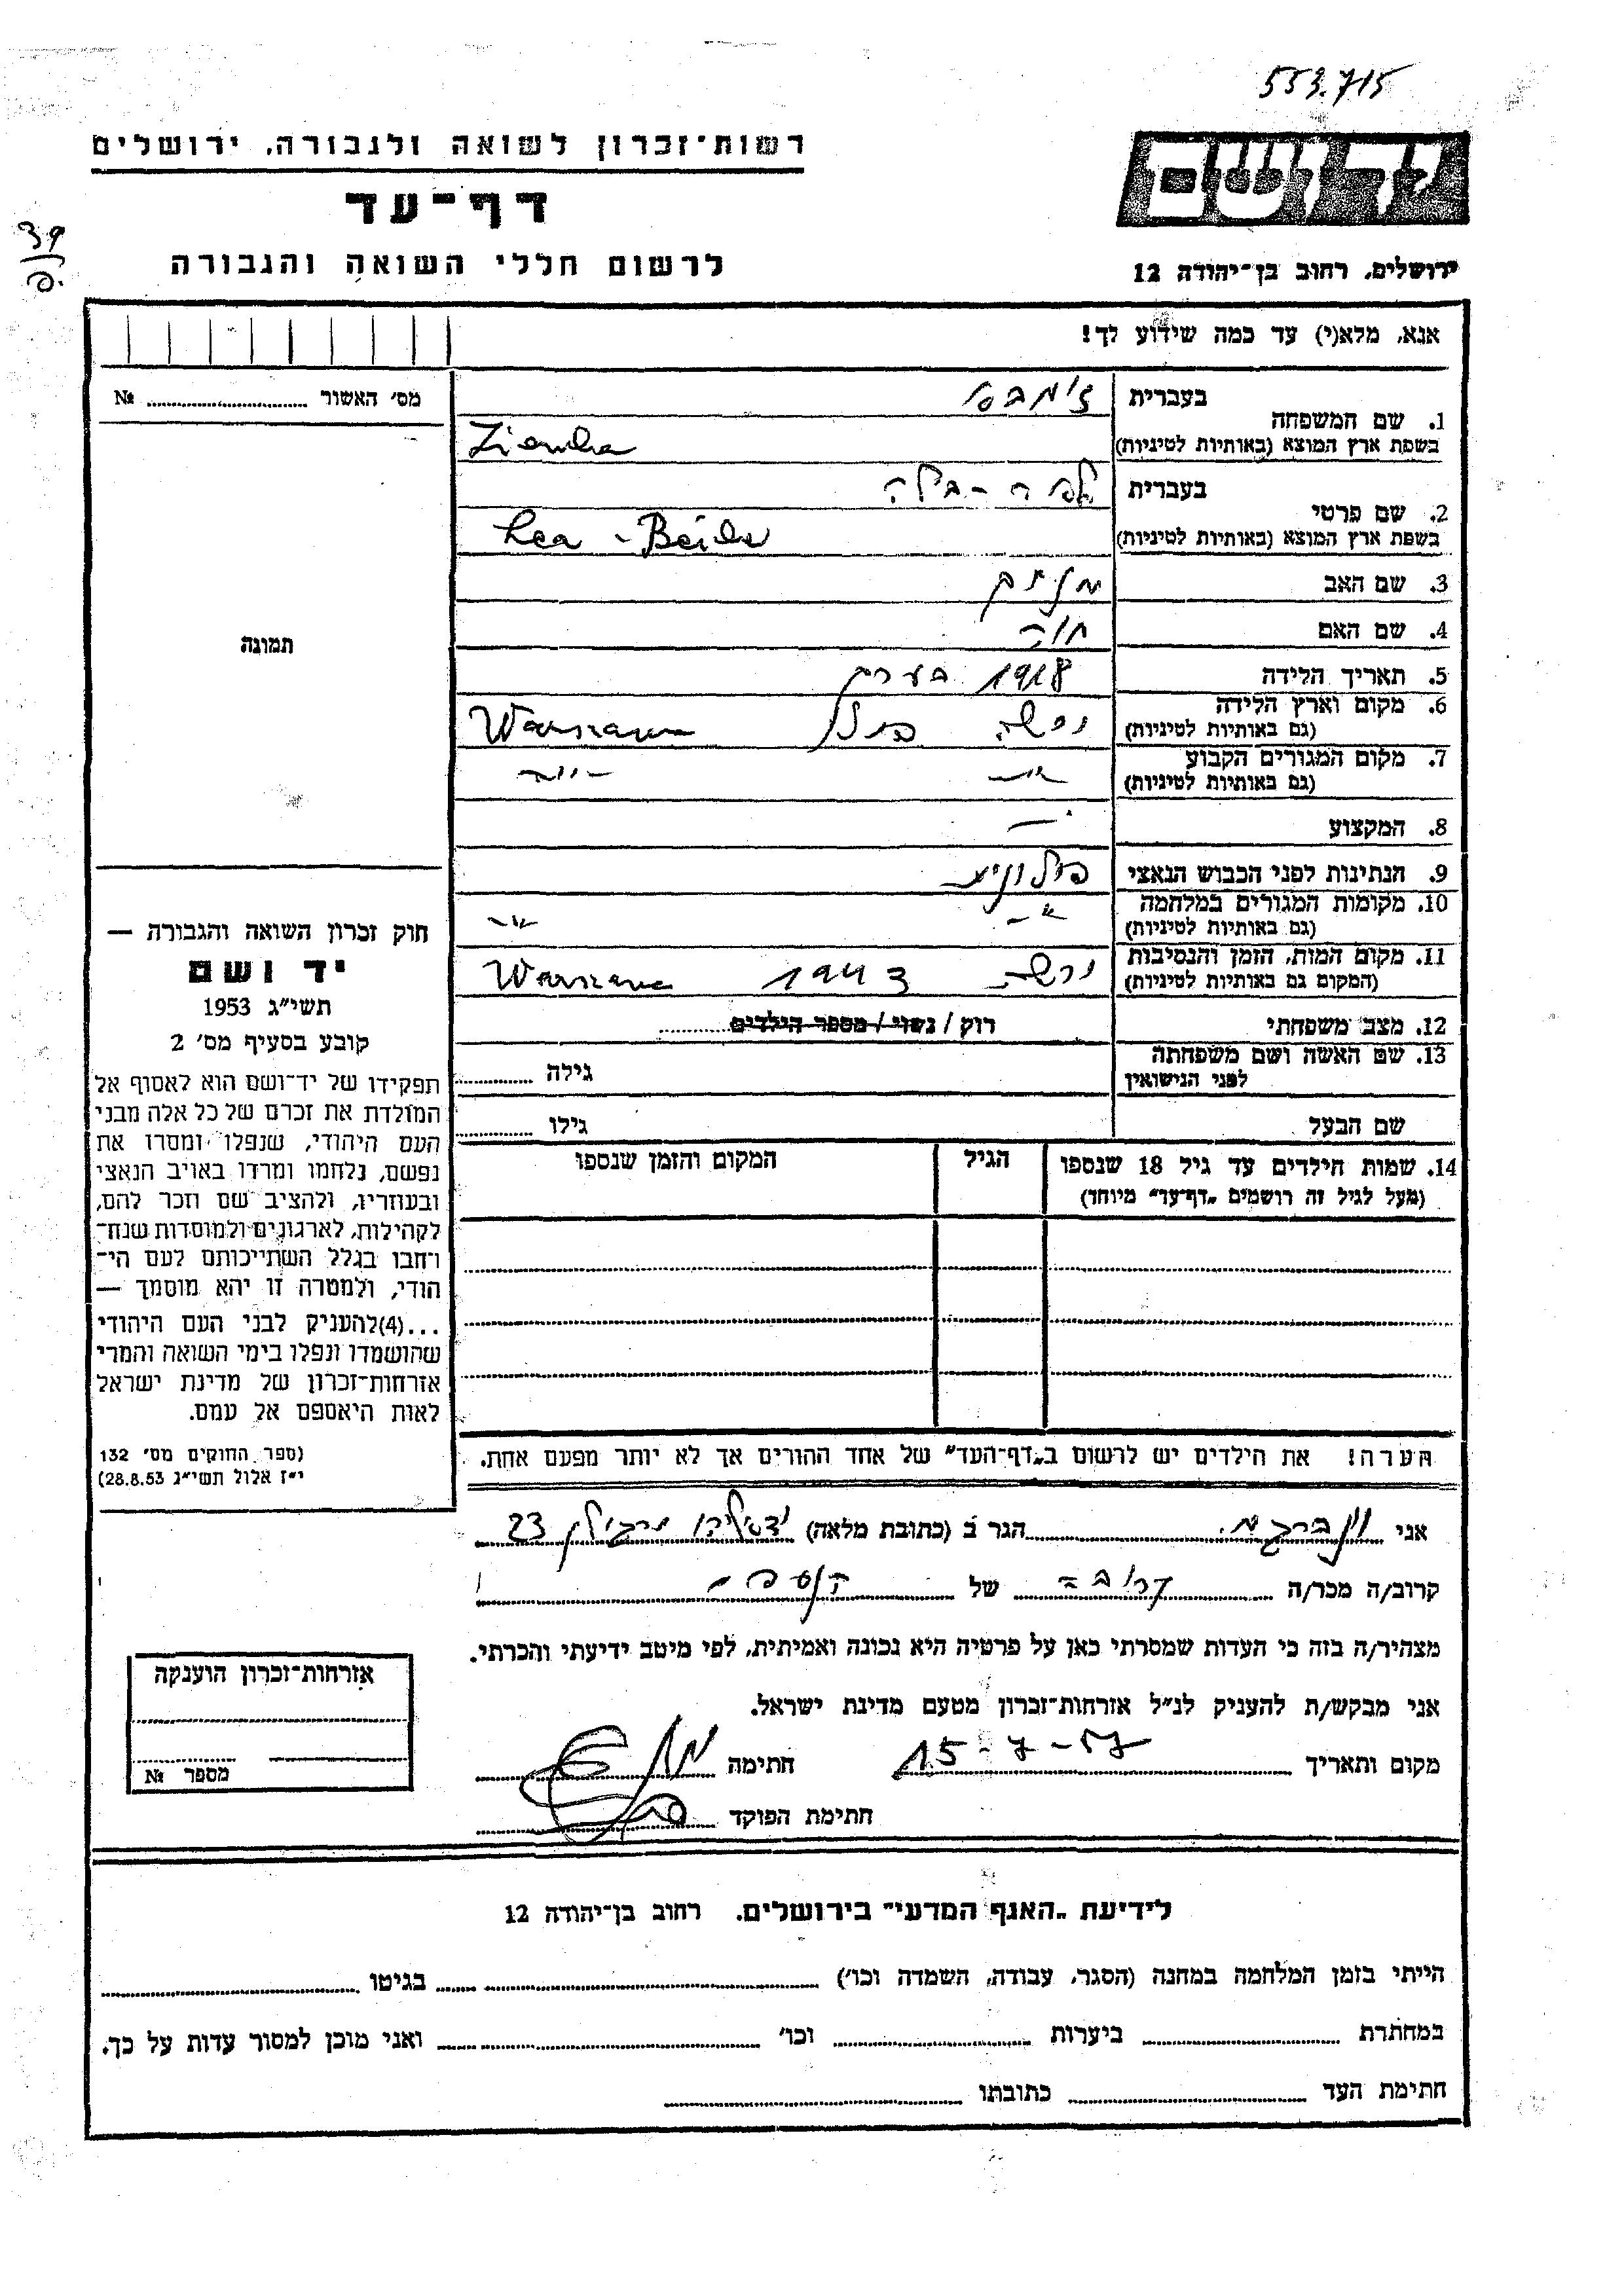 553.715
רשות־זכרון לשואה ולגבורה, ירושלים
יד ושם
דף־עד
39
לרשום חללי השואה והגבורה
ירושלים, רחוב בן־יהודה 12
אנא, מלא(י) עד כמה שידוע לך!
מס׳ האשור № 
1. שם המשפחה
בעברית
בשפת ארץ המוצא (באותיות לטיניות) Ziemba
2. שם פרטי
בעברית לאה - בילה
בשפת ארץ המוצא (באותיות לטיניות) Lea - Beila
3. שם האב
4. שם האם חוה
תמונה
5. תאריך הלידה 1918 בערך
6. מקום וארץ הלידה ורשה פולין Warszawa
(גם באותיות לטיניות)
7. מקום המגורים הקבוע -״- -״-
(גם באותיות לטיניות)
8. המקצוע —
9. הנתינות לפני הכבוש הנאצי פולונית
10. מקומות המגורים במלחמה -״- -״-
(גם באותיות לטיניות)
11. מקום המות, הזמן והנסיבות ורשה 1943 Warszawa
(המקום גם באותיות לטיניות)
12. מצב משפחתי רווק / נשוי / מספר הילדים
13. שם האשה ושם משפחתה
לפני הנישואין גילה
שם הבעל גילו
14. שמות הילדים עד גיל 18 שנספו הגיל המקום והזמן שנספו
(מעל לגיל זה רושמים „דף־עד״ מיוחד)
חוק זכרון השואה והגבורה —
יד ושם
תשי״ג 1953
קובע בסעיף מס׳ 2
תפקידו של יד־ושם הוא לאסוף אל
המולדת את זכרם של כל אלה מבני
העם היהודי, שנפלו ומסרו את
נפשם, נלחמו ומרדו באויב הנאצי
ובעוזריו, ולהציב שם וזכר להם,
לקהילות, לארגונים ולמוסדות שנח־
רחבו בגלל השתייכותם לעם הי־
הודי, ולמטרה זו יהא מוסמך —
...(4) להעניק לבני העם היהודי
שהושמדו ונפלו בימי השואה והמרי
אזרחות־זכרון של מדינת ישראל
לאות היאספם אל עמם.
(ספר החוקים מס׳ 132
י״ז אלול תשי״ג 28.8.53)
הערה! את הילדים יש לרשום ב„דף־העד״ של אחד ההורים אך לא יותר מפעם אחת.
אני הגר ב (כתובת מלאה) 23
קרוב/ה מכר/ה קרובה של
מצהיר/ה בזה כי העדות שמסרתי כאן על פרטיה היא נכונה ואמיתית, לפי מיטב ידיעתי והכרתי.
אני מבקש/ת להעניק לנ״ל אזרחות־זכרון מטעם מדינת ישראל.
מקום ותאריך 15-7-57 חתימה
חתימת הפוקד
אזרחות־זכרון הוענקה
מספר №
לידיעת „האגף המדעי״ בירושלים, רחוב בן־יהודה 12
הייתי בזמן המלחמה במחנה (הסגר, עבודה, השמדה וכו׳) בגיטו
במחתרת ביערות וכו׳ ואני מוכן למסור עדות על כך.
חתימת העד כתובתו